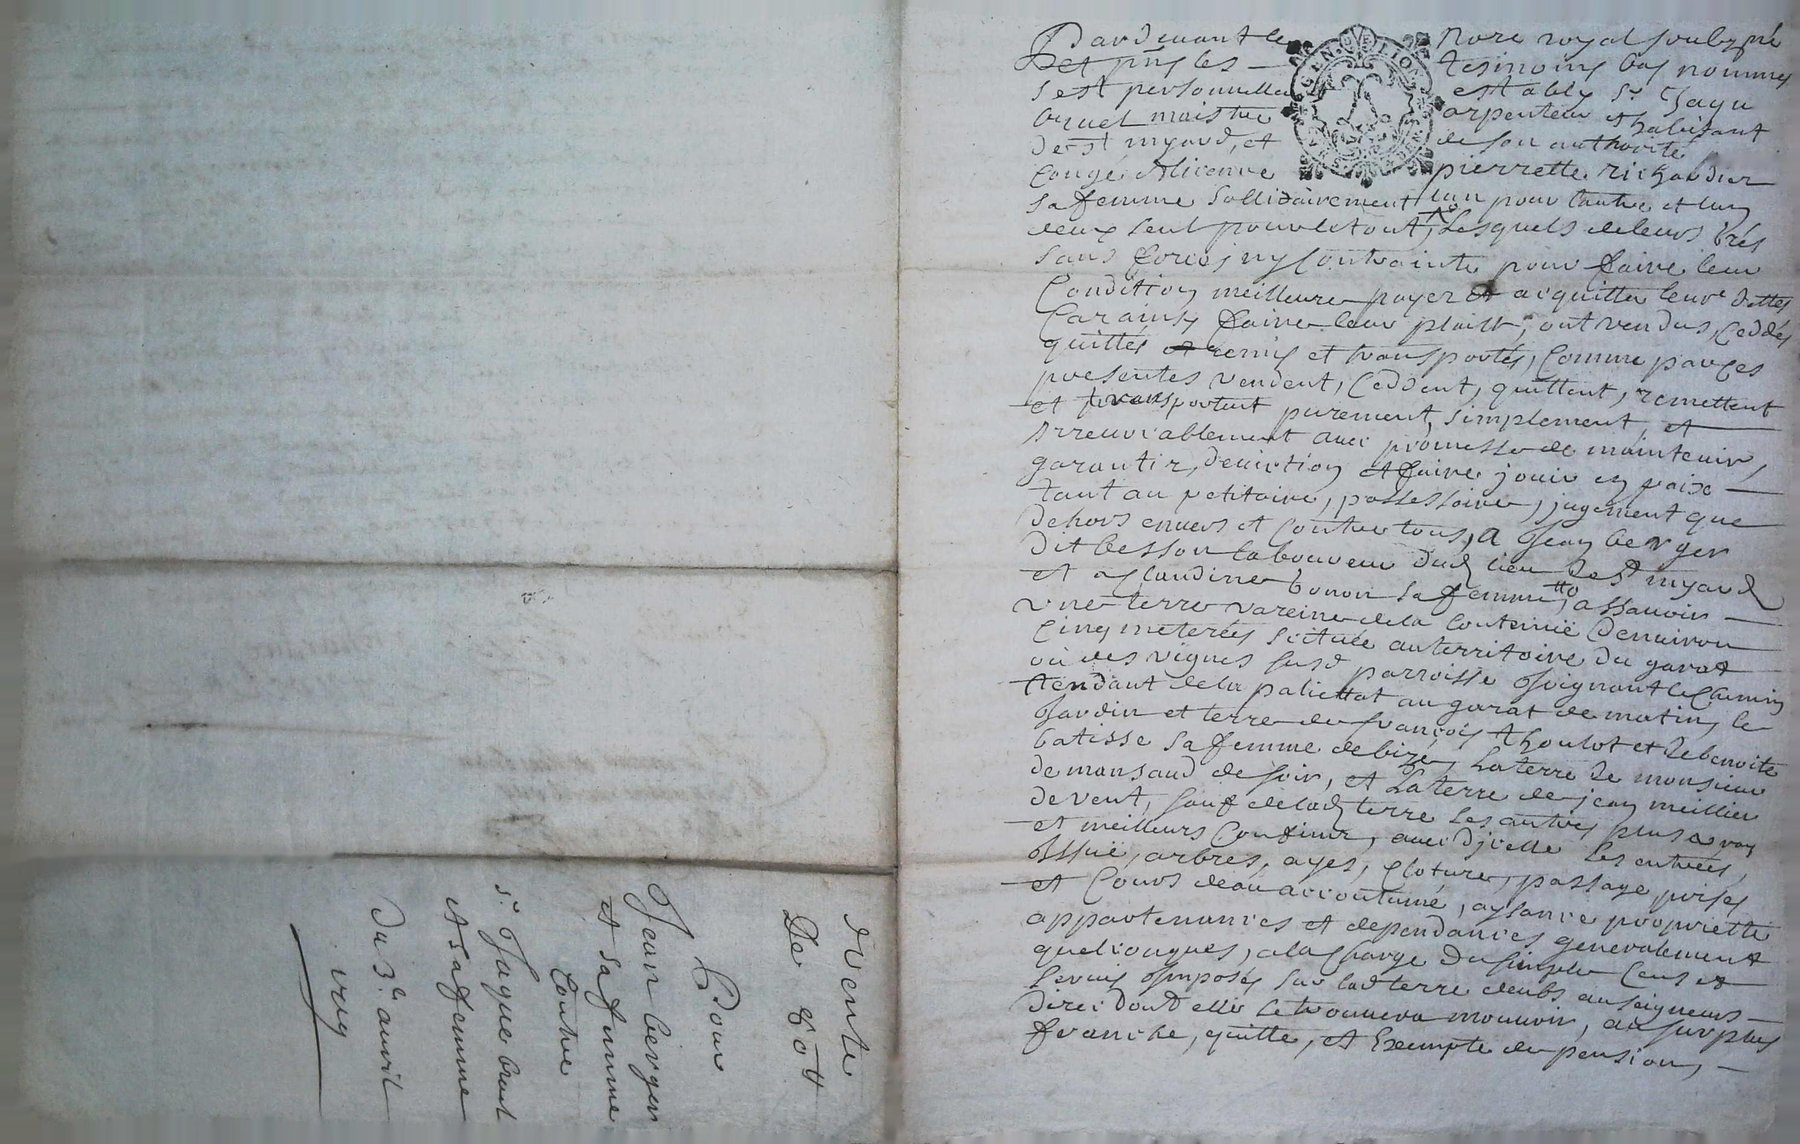 Vente
De 80 tt
Pour
Jean berger
et sa femme
Contre
sr. Jaque bruel
et sa femme
Du 3e. auvril
GEN. LION
Pardeuant le Nore royal soubzné
et pnt les tesmoins bas nommes
s'est personnellemt establi sr Jaque
bruel maistre arpenteur et habitant
de st myard, et de son authorité
congé et licence pierrette richardier
sa femme sollidairement lun pour lautre et lun
deux seul pour le tout, Lesquels de leurs grés
sans forces ny Contrainte pour faire leur
Condition meilleure payer et acquitter leurs dettes
Car ainsy faire leur plaist, ont vendus, ceddés
quittés remis et transportés, Comme par ces
presentes vendent, ceddent, quittent, remettent
et transportent purement, simplement, et
irreuocablement auec promesse de maintenir,
garantir, deuiction et faire jouir en paix
tant au petitoire, possessoire, jugement que
dehors enuers et Contre tous, A Jean berger
dit besson laboureur dud lieu de st myard
et a Claudine bonon sa femme, assauoir
vne terre vareine de la Contenuë denuiron
cinq meterées scituée au territoire du garat
ou des vignes susd parroisse Joignant le chemin
tendant de la paliettat au garat de matin, le
Jardin et terre de françois thoulot et de benoite
batisse sa femme de bize, la terre de monsieur
de monsaud de soir, et la terre de jean meillier
de vent, sauf de lad terre les autres plus vray
et meilleurs Confins, auec d'jcelle les entrées,
Jssuë, arbres, ayes, cloture, passage prises
et Cours deau accoutumé, aysance proprietté
appartenances et dependances generalement
quelconques, a la charge du simple Cens et
seruis Jmposés sur lad terre deubs au seigneur
direc dont elle se trouuera mouuoir, au surplus
franche, quitte, et Exempte de pension,